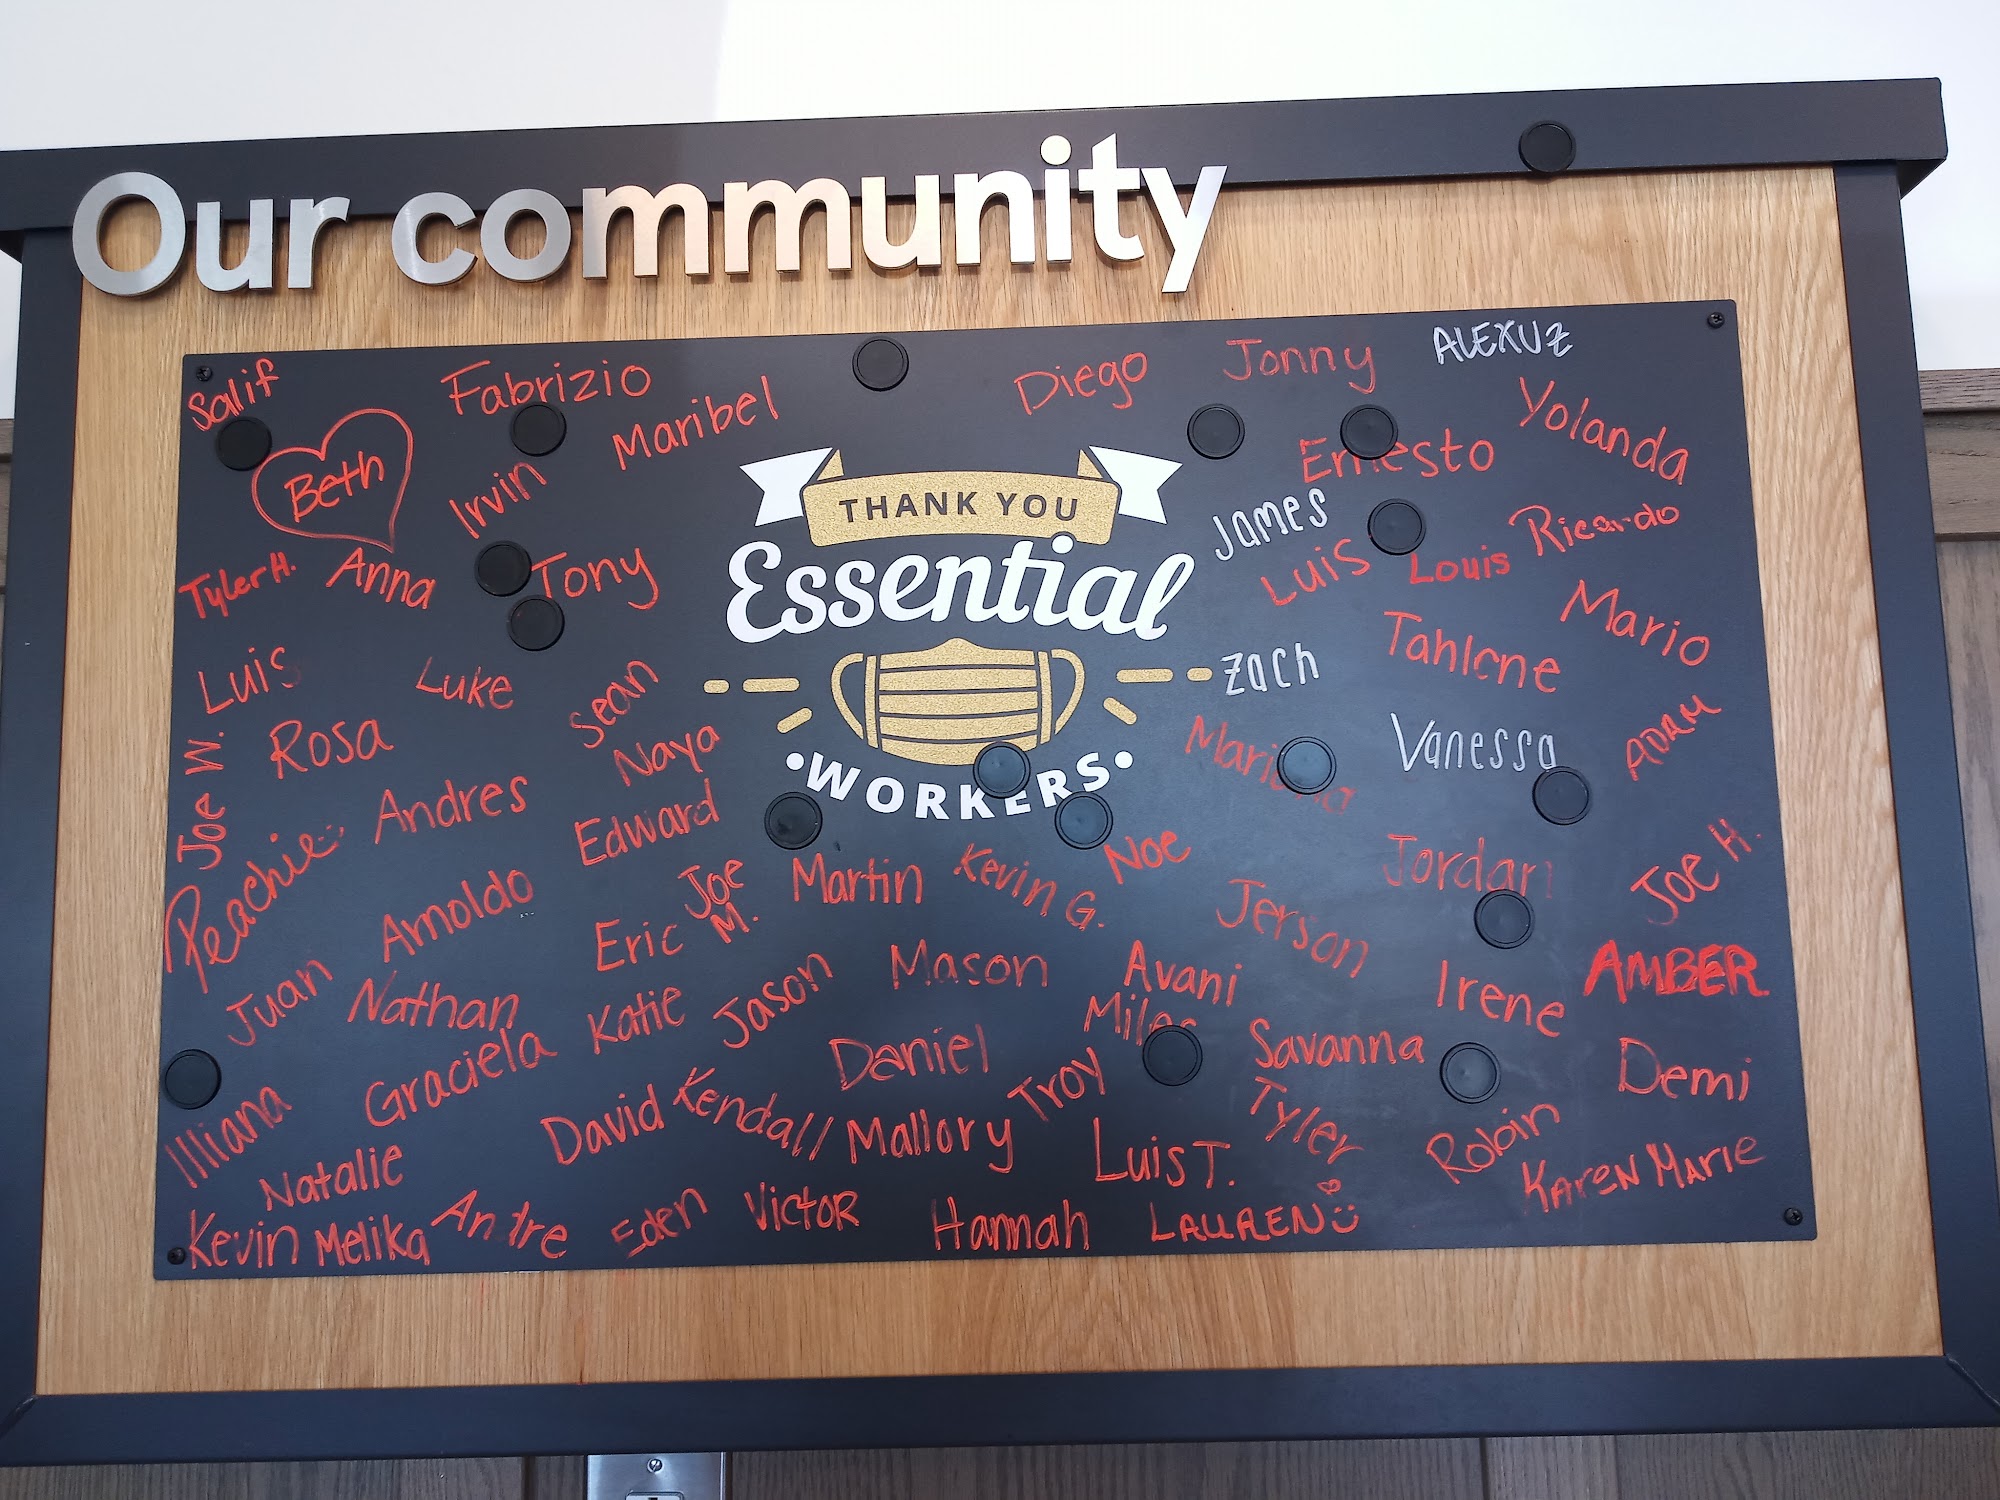 Our community
Salif
Fabrizio
Maribel
Diego
Jonny
ALEXUZ
Beth
Irvin
THANK YOU
Essential
WORKERS
Ernesto
Yolanda
James
Ricardo
Tyler H.
Anna
Tony
Luis
Louis
Mario
Luis
Luke
Sean
Zach
Tahlene
Joe W.
Rosa
Naya
Vanessa
ADAM
Peachie
Andres
Edward
Martin
Kevin G.
Noe
Jordan
Joe H.
Arnoldo
Eric
Joe
M.
Jerson
Juan
Nathan
Katie
Jason
Mason
Avani
Irene
AMBER
Graciela
Daniel
Troy
Savanna
Demi
Illiana
Natalie
David
Kendall
Mallory
Luis T.
Tyler
Robin
Karen Marie
Kevin
Melika
Andre
Eden
Victor
Hannah
LAUREN